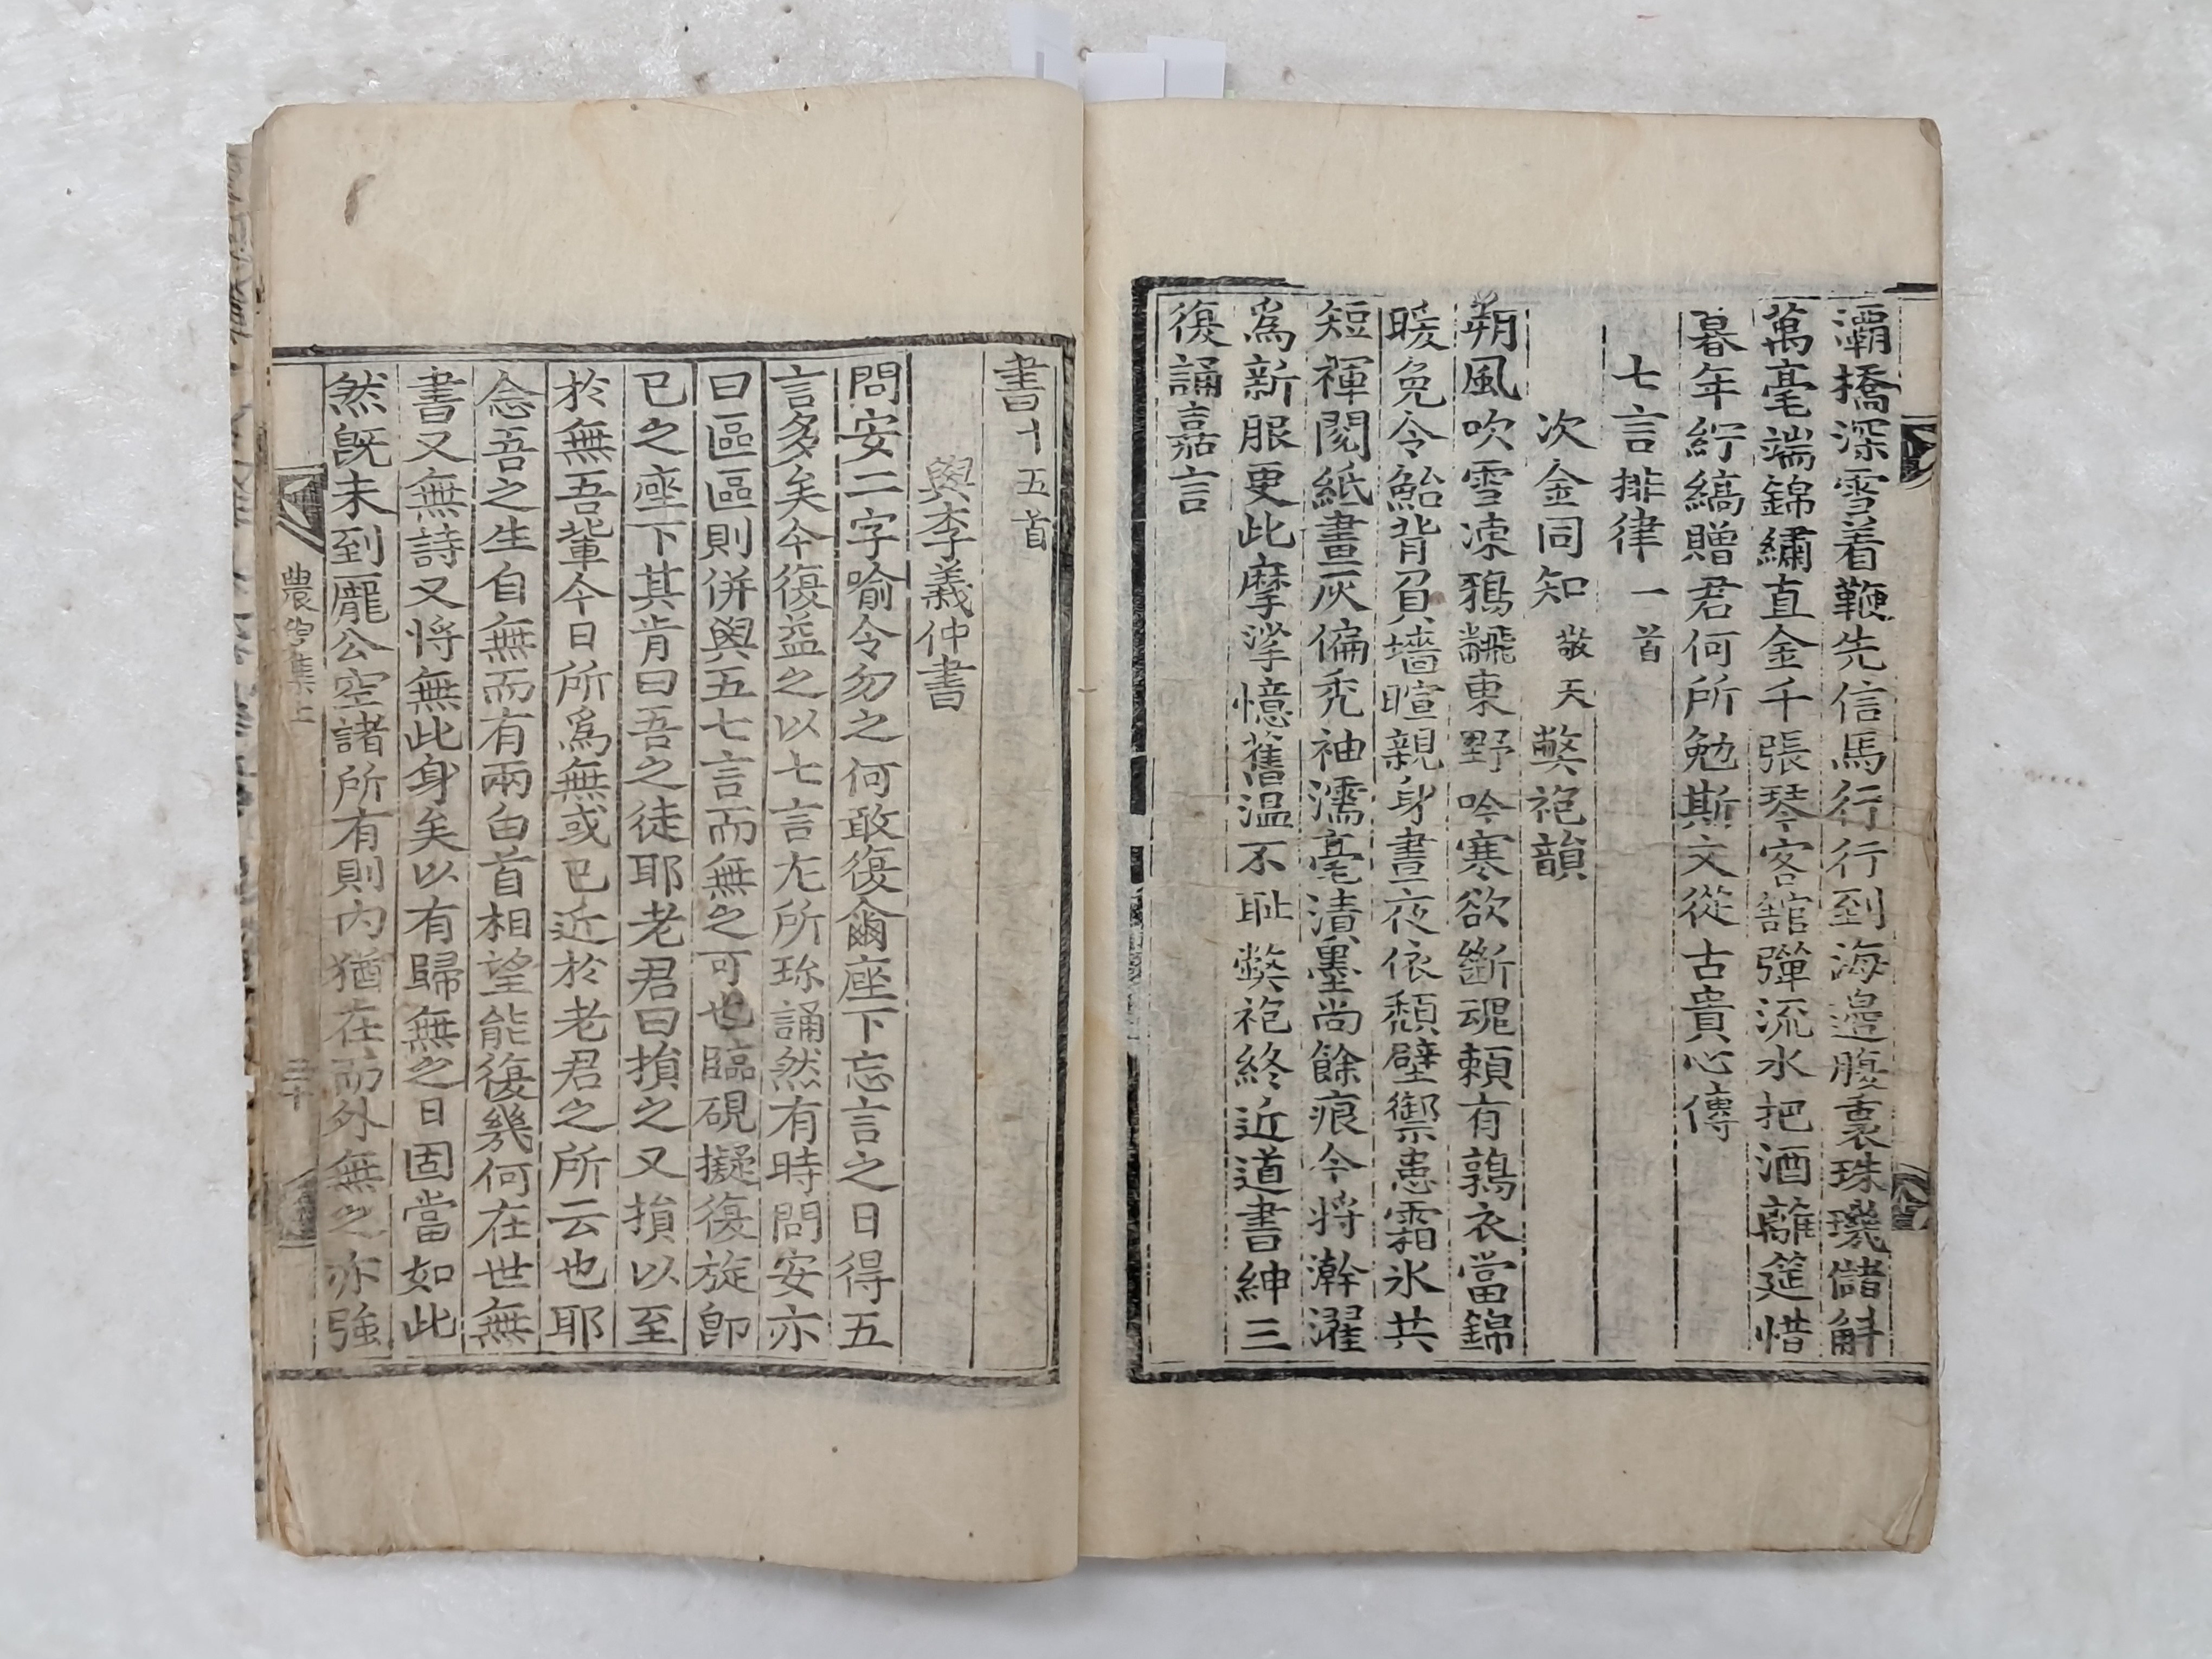 灞橋深雪着鞭先信馬行行到海邊腹裏珠璣儲斛
萬毫端錦繡直金千張琴客舘彈流水把酒離筵惜
暮年紵縞贈君何所勉斯文從古貴心傳
七言排律一首
次金同知敬天獘袍韻
朔風吹雪凍鴉飜東野吟寒欲斷魂頼有鶉衣當錦
暖免令鮐背負墻暄親身晝夜依頹壁禦患霜氷共
短褌閱紙畫灰偏禿袖濡毫漬墨尚餘痕今將澣濯
爲新服更此摩挲憶舊温不耻獘袍終近道書紳三
復誦嘉言
書十五首
與李義仲書
問安二字喻令勿之何敢復爾座下忘言之日得五
言多矣今復益之以七言尤所珎誦然有時問安亦
曰區區則併與五七言而無之可也臨硯擬復旋卽
已之座下其肯曰吾之徒耶老君曰損之又損以至
於無吾輩今日所爲無或已近於老君之所云也耶
念吾之生自無而有兩白首相望能復幾何在世無
書又無詩又將無此身矣以有歸無之日固當如此
然旣未到龐公空諸所有則內猶在而外無之亦強
農 集上
三十